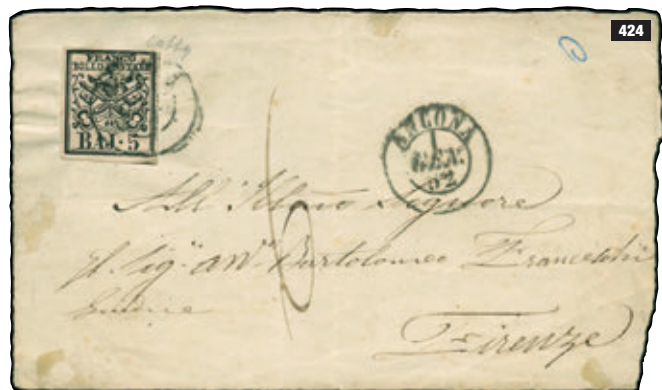 424
FRANCO
BOLLO POSTALE
BAI·5
ANCONA
1
GEN.
52
All' Illmo Signore
Il Sigr Avv. Bartolomeo
Firenze